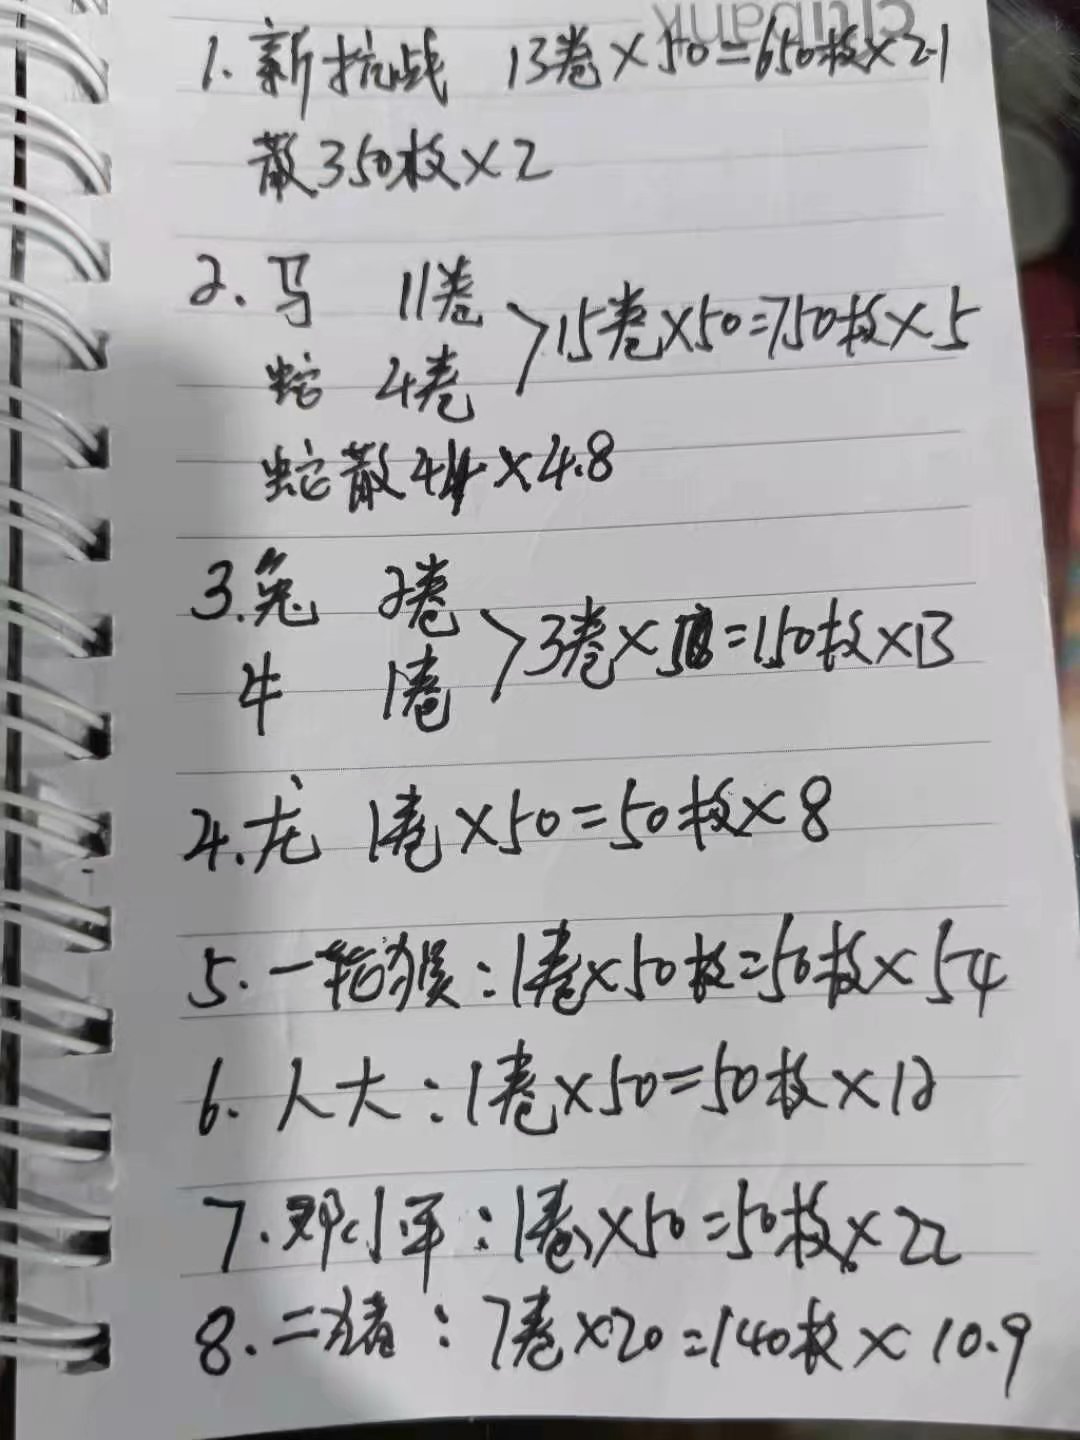 citibank
1. 新抗战 13卷×50=650枚×2.1
散350枚×2
2. 马 11卷
>15卷×50=750枚×5
蛇 4卷
蛇散44×4.8
3. 兔 2卷
>3卷×50=150枚×13
牛 1卷
4. 龙 1卷×50=50枚×8
5. 一轮猴:1卷×50枚=50枚×54
6. 人大:1卷×50=50枚×12
7. 邓小平:1卷×50=50枚×22
8. 二猪:7卷×20=140枚×10.9